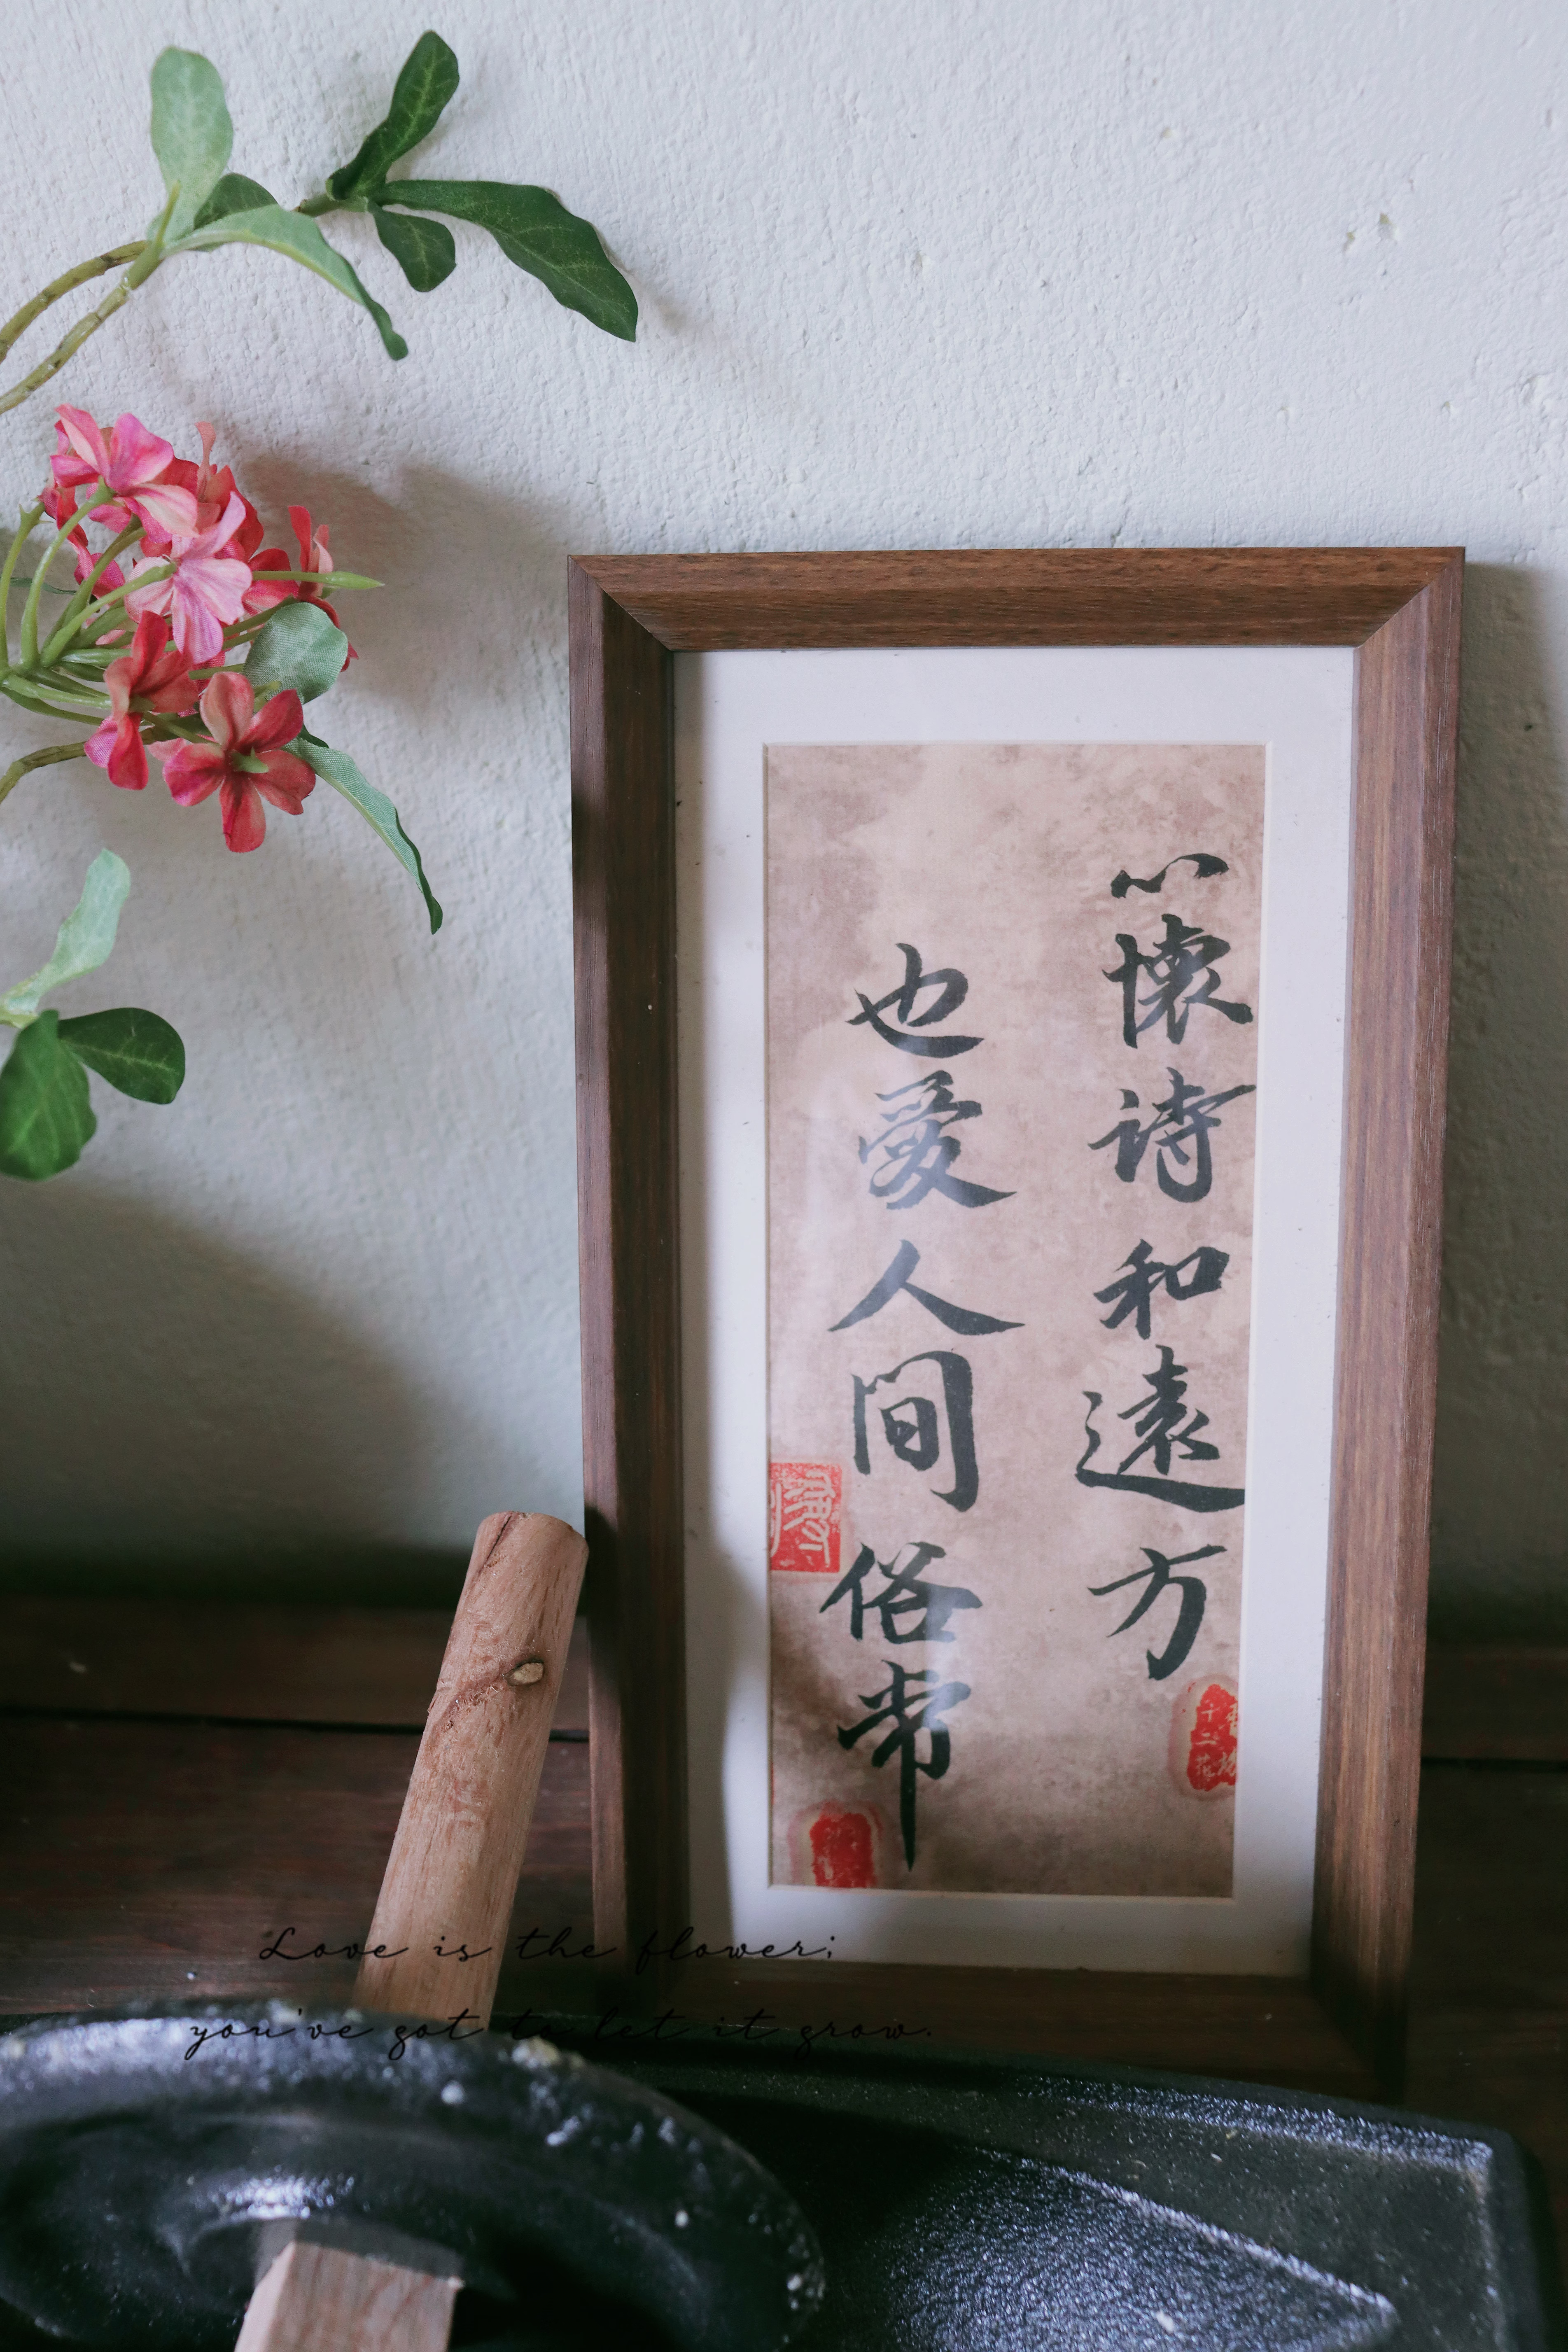 心懷诗和遠方
也愛人间俗常
Love is the flower;
you've got to let it grow.